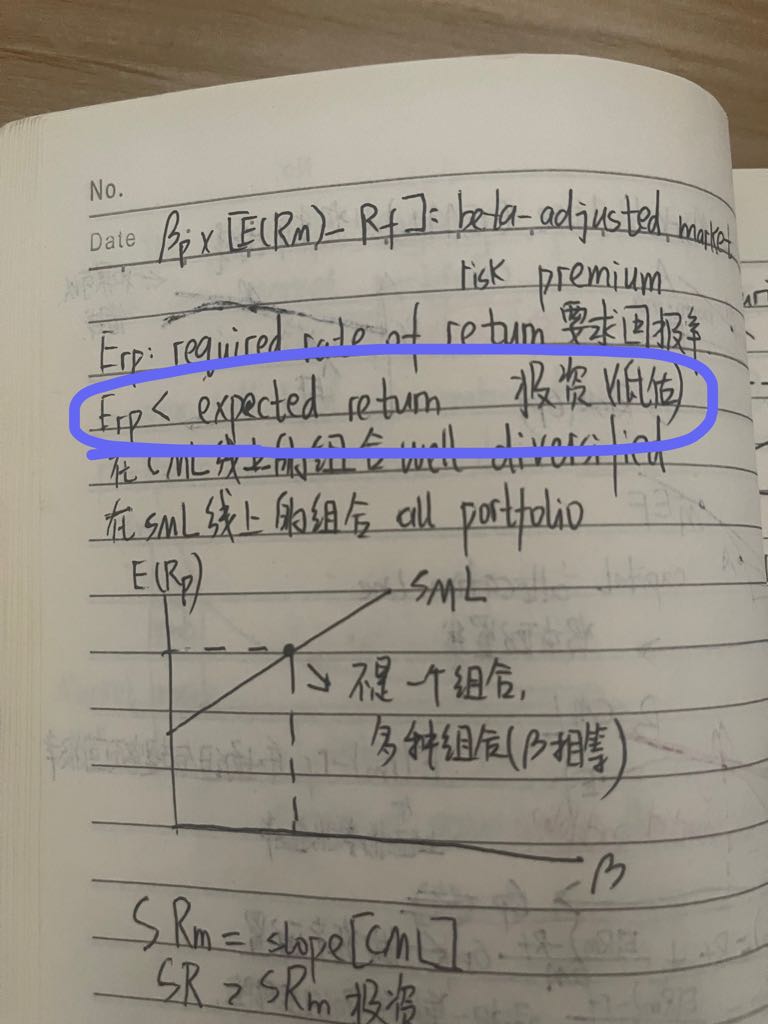 No.
Date βp × [E(Rm) - Rf]: beta-adjusted market
risk premium
Erp: required rate of return 要求回报率
Erp < expected return 投资(低估)
在CML线上的组合 well diversified
在SML线上的组合 all portfolio
E(Rp)
SML
不是一个组合,
多种组合(β相等)
β
SRm = slope[CML]
SR > SRm 投资